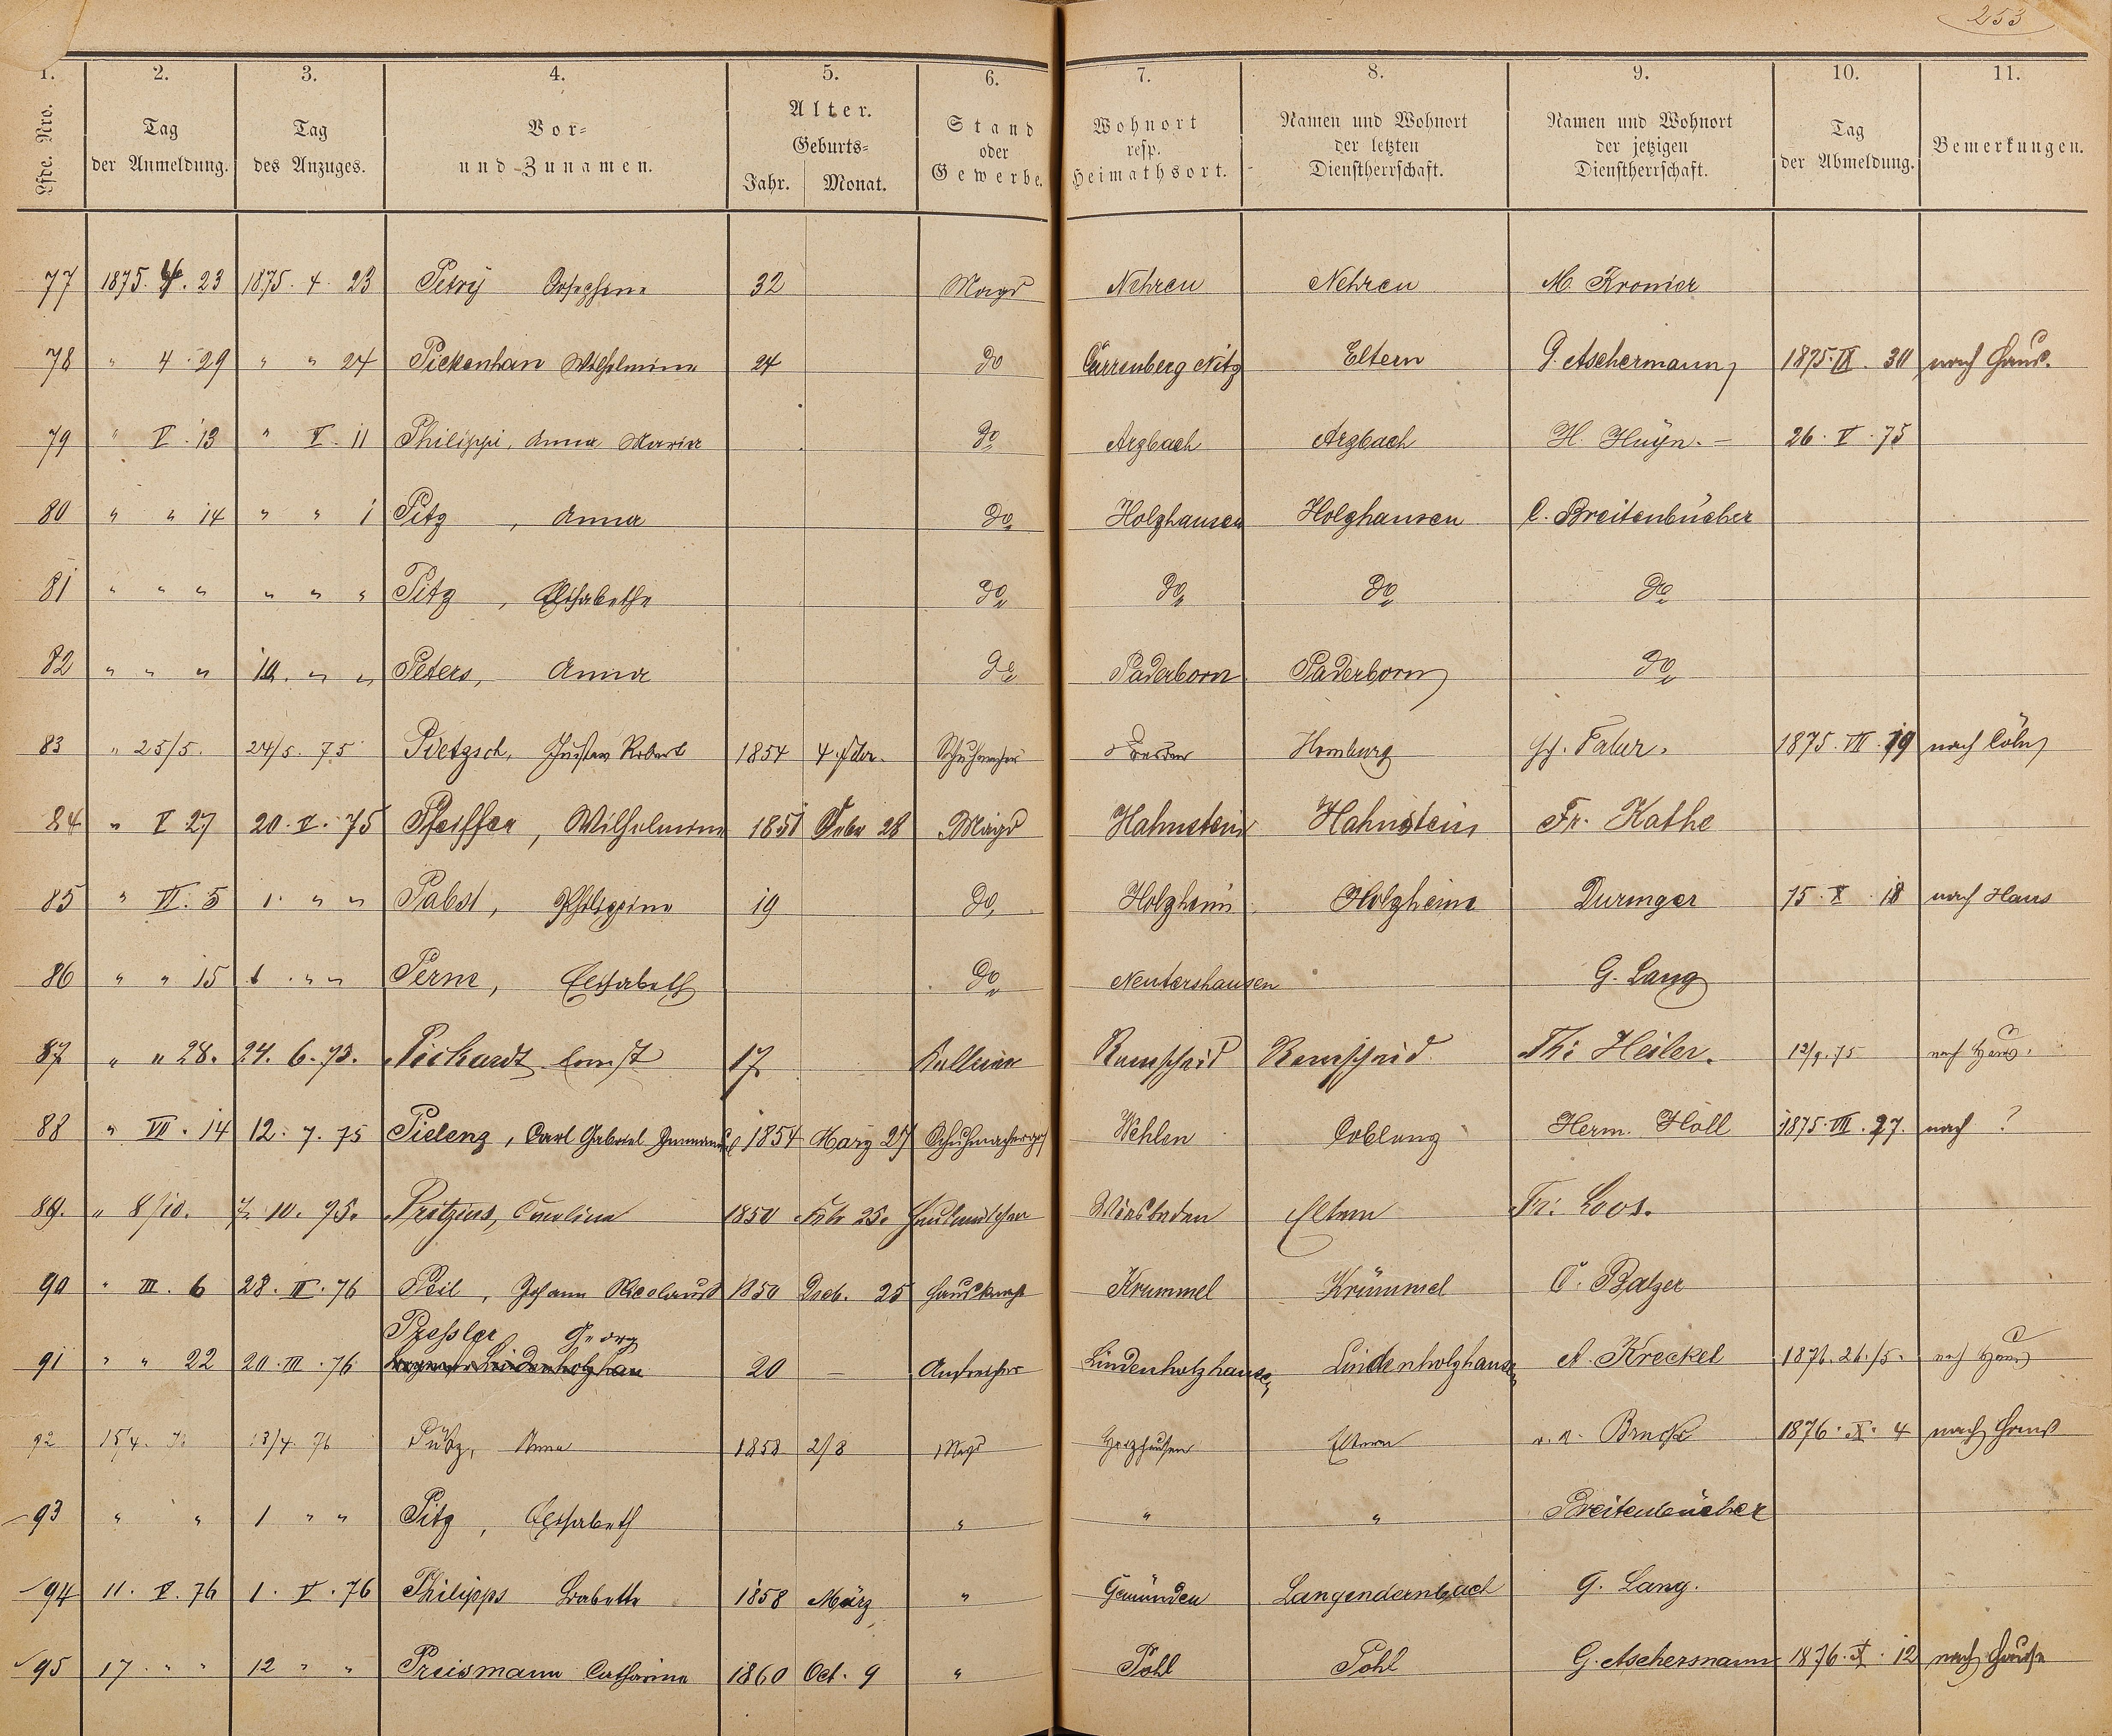 253
1. 2. 3. 4. 5. 6. 7. 8. 9. 10. 11.
Lfde. Nro. Tag der Anmeldung. Tag des Anzuges. Vor- und Zunamen. Alter. Geburts- Jahr. Monat. Stand oder Gewerbe. Wohnort resp. Heimathsort. Namen und Wohnort der letzten Dienstherrschaft. Namen und Wohnort der jetzigen Dienstherrschaft. Tag der Abmeldung. Bemerkungen.
77 1875. 4. 23 1875. 4. 23 Petry Josephine 32 Magd Nehren Nehren M. Kronier
78 " 4. 29 " " 24 Pickenhan Wilhelmine 24 do Cürrenberg Nitz Eltern G. Aschermann 1875. IX. 30 nach Haus.
79 " V. 13 " V. 11 Philippi, Anna Maria do Arzbach Arzbach H. Huyn. – 26. V. 75
80 " " 14 " " 1 Pitz, Anna do Holzhausen Holzhausen C. Breitenbücher
81 " " " " " " Pitz, Elisabethe do do do do
82 " " " 10. " " Peters, Anna do Paderborn Paderborn do
83 " 25/5. 24/5. 75 Pietzsch, Gustav Robert 1854 4. Schuhmacher Dresden Homburg Fr. Falur. 1875. VII. 19 nach Cöln
84 " V 27 20. V. 75 Pfeiffer, Wilhelmine 1851 Febr 28 Magd Hahnstein Hahnstein Fr. Kathe
85 " VI. 5 1. " " Pabst, Philippine 19 do Holzheim Holzheim Duringer 75. X. 18 nach Haus
86 " " 15 1. " " Perne, Elisabeth do Nentershausen G. Lang
87 " " 28. 24. 6. 75. Pichardt Ernst 17 Kellner Remscheid Remscheid Th: Heiler. 12/9. 75 nach Haus.
88 " VII. 14 12. 7. 75 Pielenz, Carl Gabriel Immanuel 1854 März 27 Schuhmacherges Wehlen Coblenz Herm. Höll 1875. VII. 27. nach ?
89. " 8/10. 7. 10. 75. Pritzius, Caroline 1850 Febr 25. Haushälterin Wiesbaden Eltern Fr: Loos.
90 " III. 6 28. II. 76 Peil, Johann Nicolaus 1850 Dzeb. 25 Hausknecht Krummel Krümmel C. Balzer
Pressler Georg
91 " " 22 20. III. 76 20 – Anstreicher Lindenholzhausen Lindenholzhausen A. Kreckel 1876. 26./5. nach Haus
92 15/4. 76 13/4. 76 Pütz, Anna 1858 2/8 Magd Holzhausen Eltern Bruck 1876. X. 4 nach Haus
93 " " 1 " " Pitz, Elisabeth " " " Breitenbücher
94 11. V. 76 1. V. 76 Philipps Babette 1858 März " Gemünden Langendernbach G. Lang.
95 17. " " 12 " " Preismann Catharina 1860 Oct. 9 " Pohl Pohl G. Aschermann 1876. X. 12 nach Hause